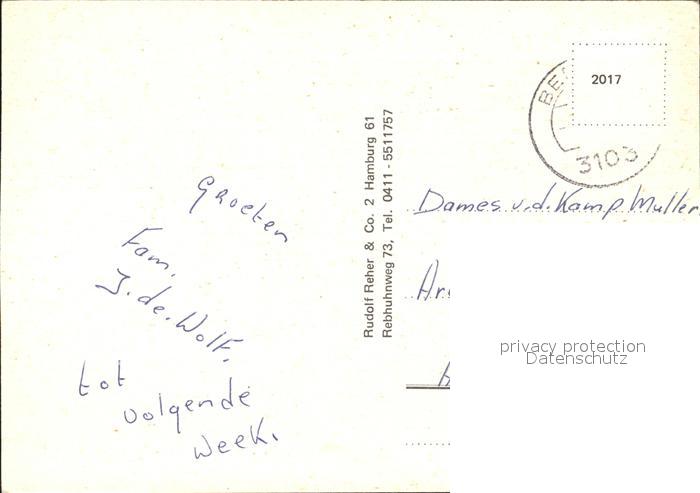 Groeten
Fam.
J. de. Wolf.
tot
volgende
week.
Rudolf Reher & Co. 2 Hamburg 61
Rebhuhnweg 73, Tel. 0411 - 5511757
2017
BE
3103
Dames v.d. Kamp Muller
Ar
privacy protection
Datenschutz